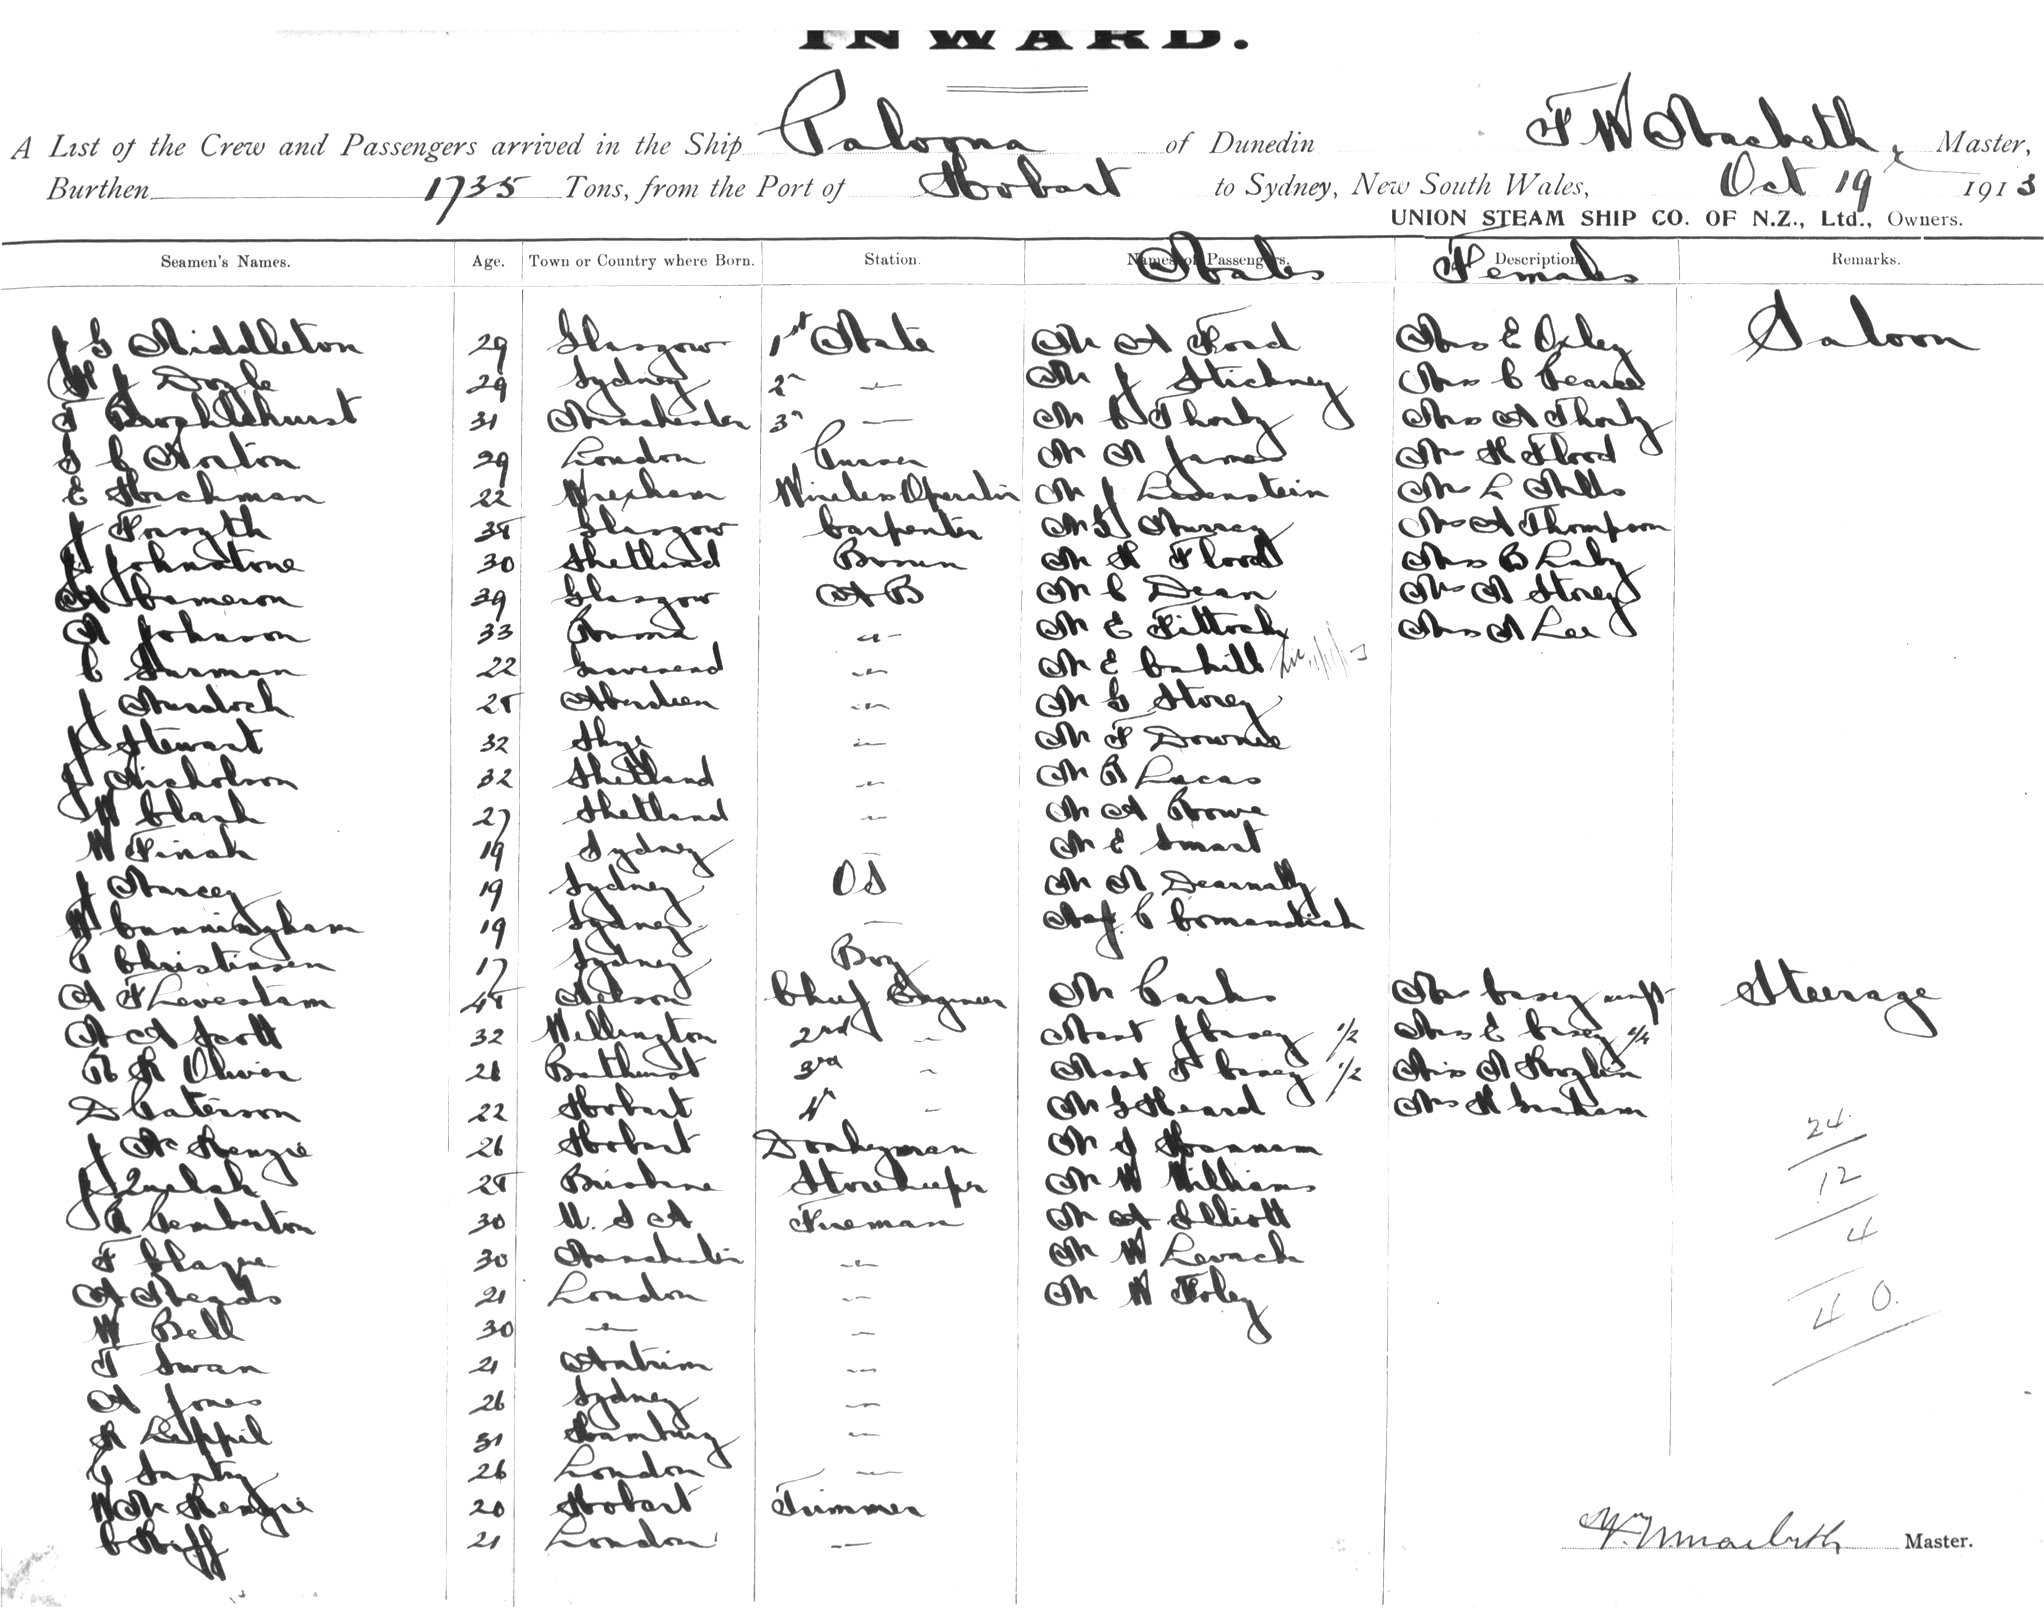 INWARD.
A List of the Crew and Passengers arrived in the Ship Paloona of Dunedin F W Macbeth, Master,
Burthen 1735 Tons, from the Port of Hobart to Sydney, New South Wales, Oct 19 1913
UNION STEAM SHIP CO. OF N.Z., Ltd., Owners.
Seamen's Names. Age. Town or Country where Born. Station. Names of Passengers. Males Description Females Remarks.
J G Middleton 29 Glasgow 1st Mate M A Foad Mrs E Oxley Saloon
W J Doyle 29 Sydney 2" — M J Stickney Mrs C Pearce
F Brocklehurst 31 Manchester 3" — M C Thorby Mrs A Thorby
S G Norton 29 London Purser M A James Mrs H Flood
E Horchman 22 Wrexham Wireless Operator M J Levenstein Ms L Mills
J Forsyth Glasgow Carpenter M Murray Ms A Thompson
J Johnstone 30 Shetland Bosun M H Flood Mrs B Laby
A Cameron 39 Glasgow A B M C Dean Ms A Storey
A Johnson 33 -"- M E Fittock Mrs A Lee
C Surman 22 Gravesend -"- M E Cahill
J Murdoch Aberdeen -"- M G Storey
J Stewart 32 Skye -"- M F Downie
J Nicholson 32 Shetland -"- M A Lucas
W Clark 27 Shetland -"- M A Rowe
W Finch 19 Sydney — M E Smart
J Marcey 19 Sydney OS M A Dearnally
W Cunningham 19 Sydney — Maj. C
C Christensen 17 Sydney Boy
A F Levestam Nelson Chief Engineer M Carka Mrs Casey Steerage
A A Scott 32 Wellington 2nd - Mast J Casey 1/2 Mrs E Casey
R H Oliver Bathurst 3rd - Mast F Casey 1/2 Miss A
D Caterson 22 Hobart 4" - M G Heard Ms H Graham
J McKenzie 26 Hobart Donkeyman M J Hannam 24
J Quelch Brisbane Storekeeper M W Williams 12
A Pemberton 30 U. S A Fireman M A Elliott 4
F Clague 30 Manchester -"- M W Levack
A Meads 21 London -"- M W Foley 40.
W Bell 30 -"- -"-
F Swan 21 Antrim -"-
A Jones 26 Sydney -"-
H Leppil 31 Hamburg -"-
C 26 London -"-
W McKenzie 20 Hobart Trimmer
C Riff 21 London -"-
Master.